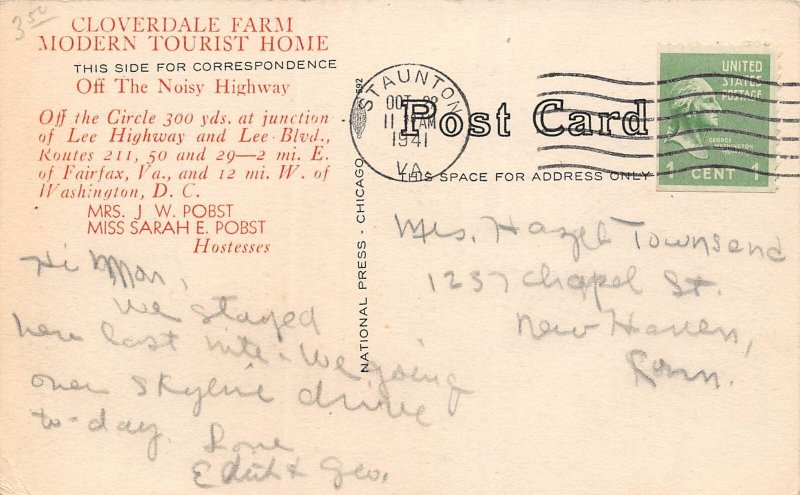 3.50
CLOVERDALE FARM
MODERN TOURIST HOME
THIS SIDE FOR CORRESPONDENCE
Off The Noisy Highway
Off the Circle 300 yds. at junction
of Lee Highway and Lee Blvd.,
Routes 211, 50 and 29—2 mi. E.
of Fairfax, Va., and 12 mi. W. of
Washington, D. C.
MRS. J W. POBST
MISS SARAH E. POBST
Hostesses
Hi Mom,
We stayed
here last nite - We going
over Skyline drive
to-day.
Love
Edith & Geo.
NATIONAL PRESS - CHICAGO
STAUNTON
OCT
11 AM
1941
VA.
Post Card
THIS SPACE FOR ADDRESS ONLY
UNITED
STATES
POSTAGE
GEORGE
WASHINGTON
1 CENT 1
Mrs. Hazel Townsend
1237 Chapel St.
New Haven,
Conn.